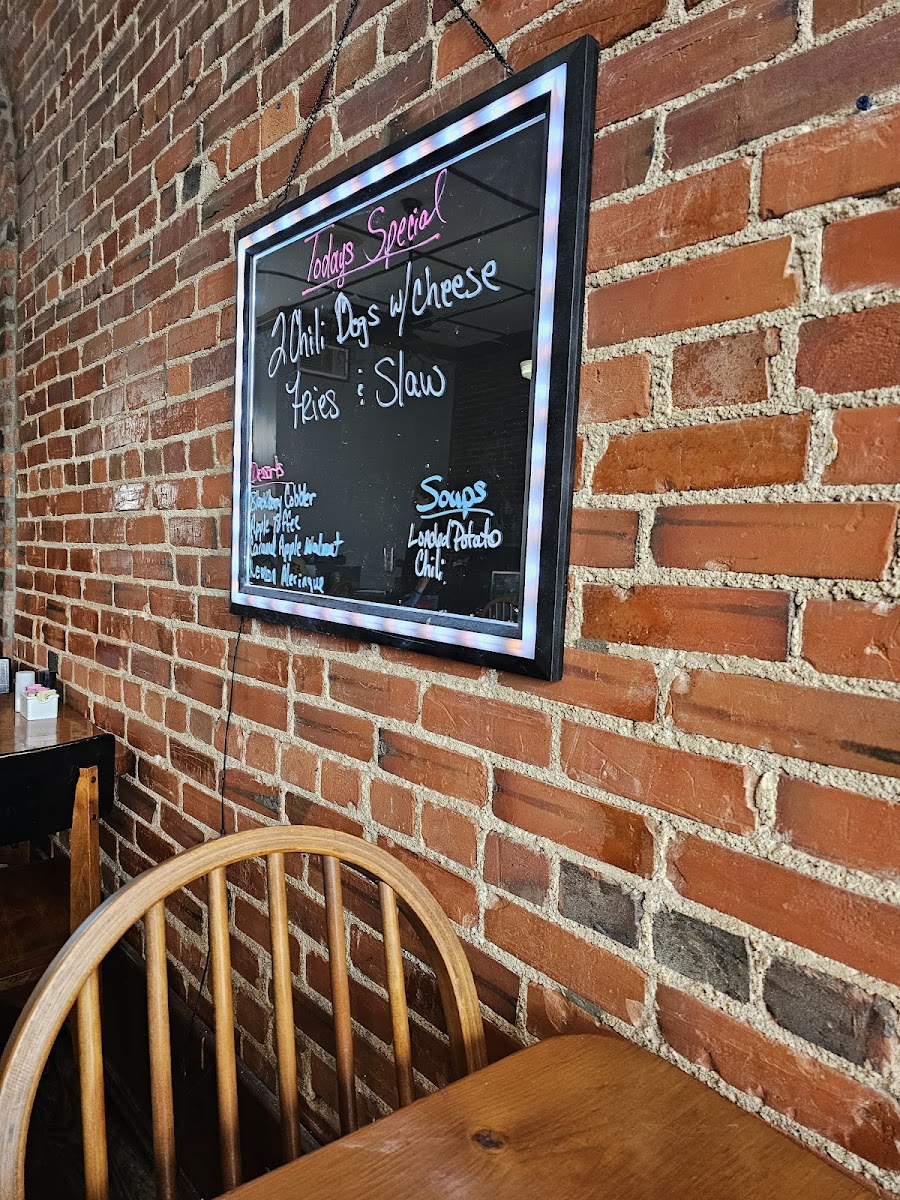 Todays Special
2 Chili Dogs w/cheese
Fries & Slaw
Desserts
Blackberry Cobbler
Apple Toffee
Caramel Apple Walnut
Lemon Meringue
Soups
Loaded Potato
Chili